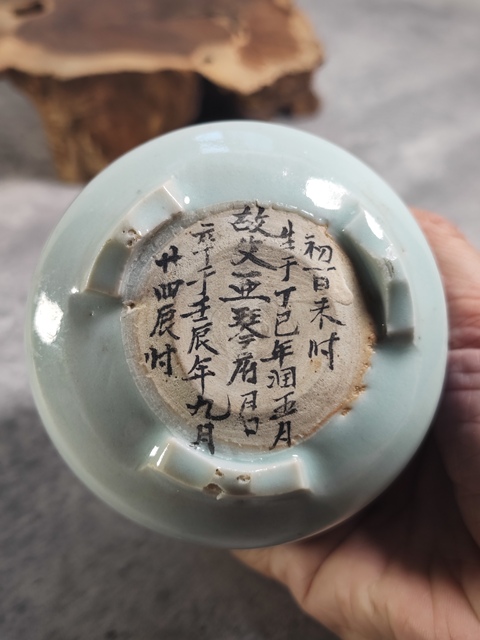 故父亚琴府月日
生于丁巳年润五月
初一日未时
卒于壬辰年九月
廿四辰时